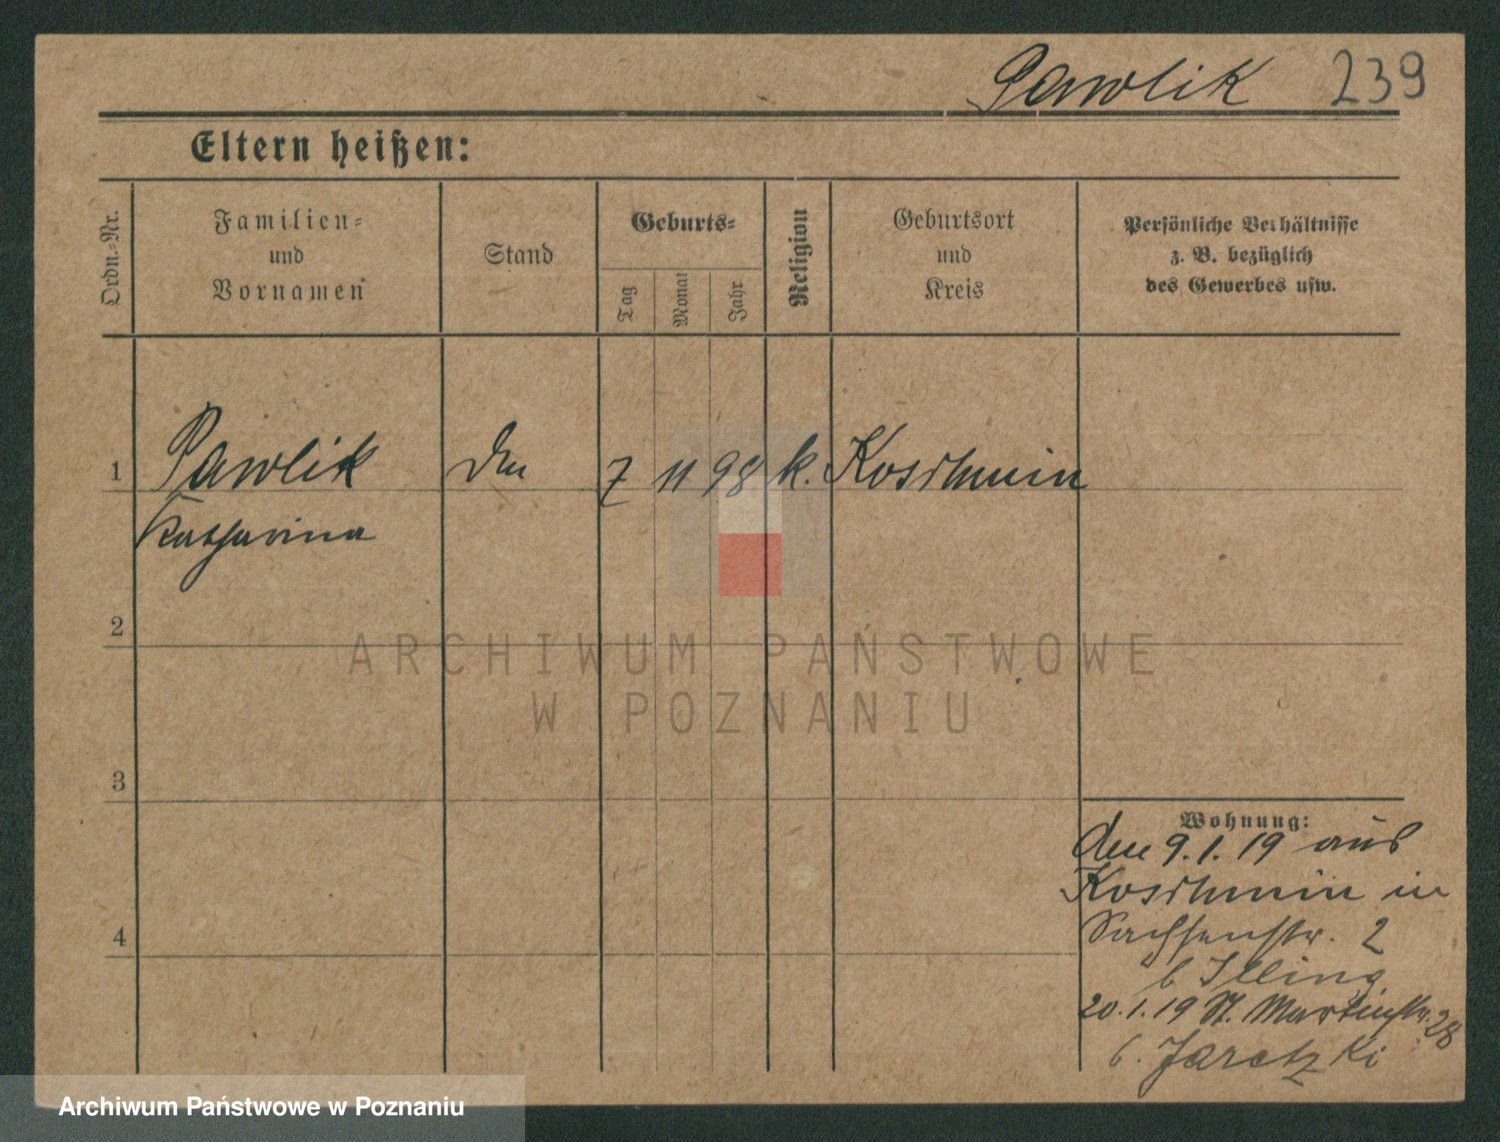 Pawlik 239
Eltern heißen:
Ordn.-Nr.
Familien-
und
Vornamen
Stand
Geburts-
Tag
Monat
Jahr
Religion
Geburtsort
und
Kreis
Persönliche Verhältnisse
z. B. bezüglich
des Gewerbes usw.
1 Pawlik 7 11 98 k. Koschmin
Katharina
2
3
4
Wohnung:
den 9.1.19 aus
Koschmin in
Sachsenstr. 2
b Illing
20.1.19 St. Martinstr. 28
b. Jaretzki
ARCHIWUM PAŃSTWOWE
W POZNANIU
Archiwum Państwowe w Poznaniu